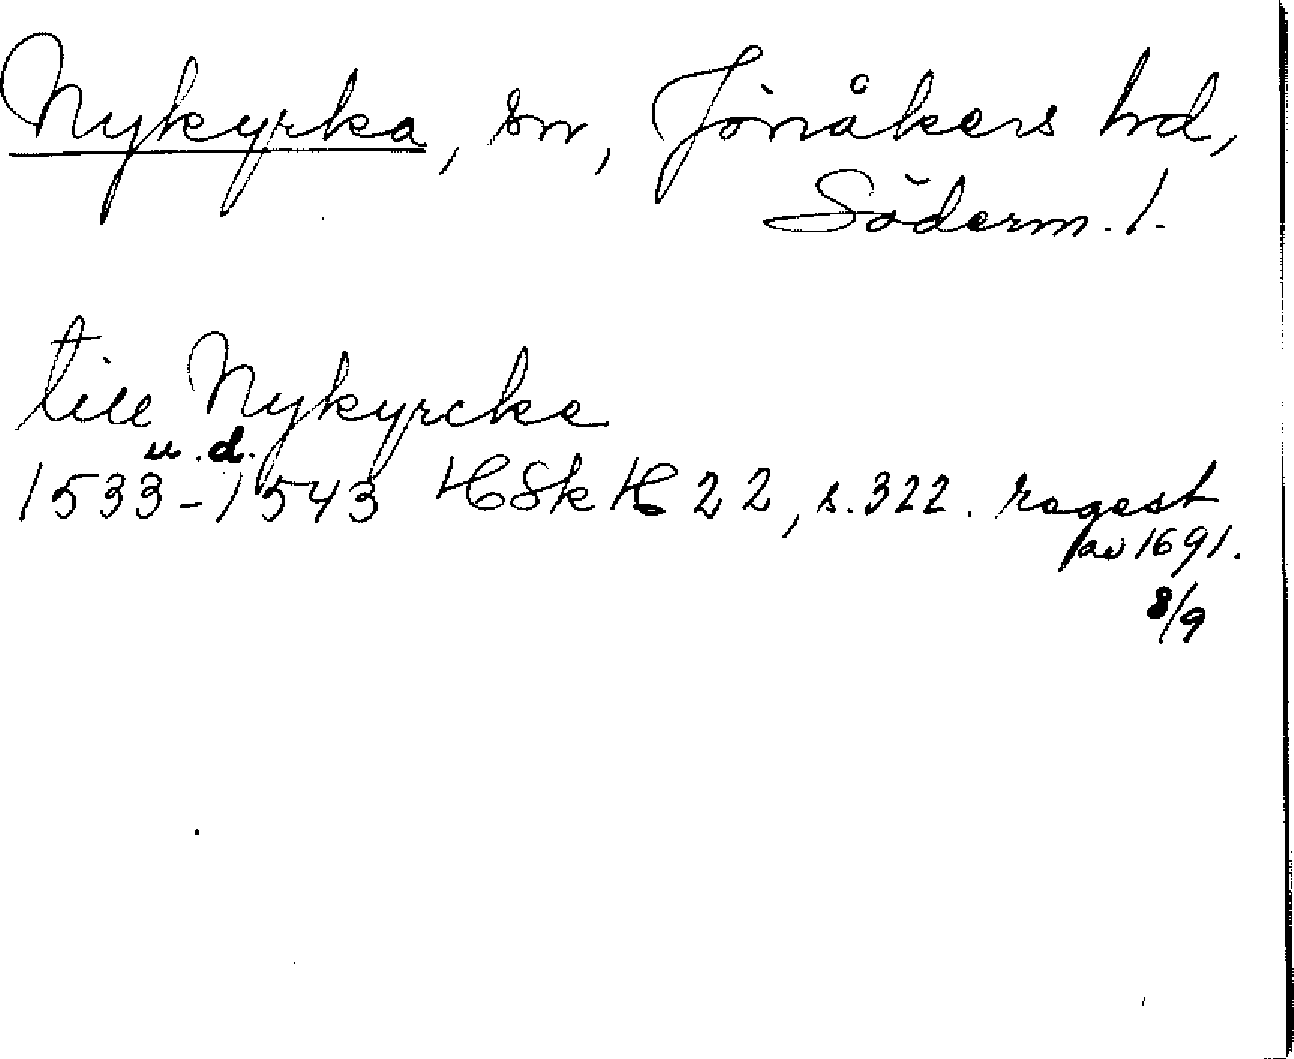 Nykyrka, sn, Jönåkers hd,
Söderm. l.
till Nykyrcke
u.d.
1533-1543 HSk H 22, s. 322. regest
av 1691.
8/9